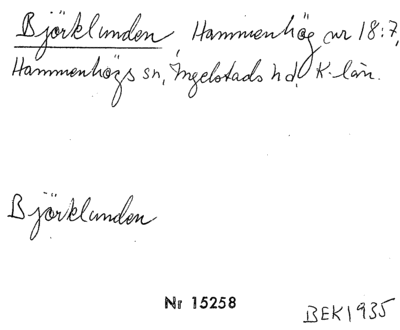 Björklunden, Hammenhög nr 18:7,
Hammenhögs sn, Ingelstads hd, K-län.
Björklunden
Nr 15258
BEK 1935